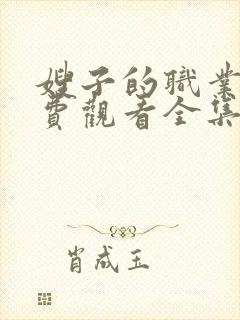 嫂子的職業
費觀看全集
肖成玉